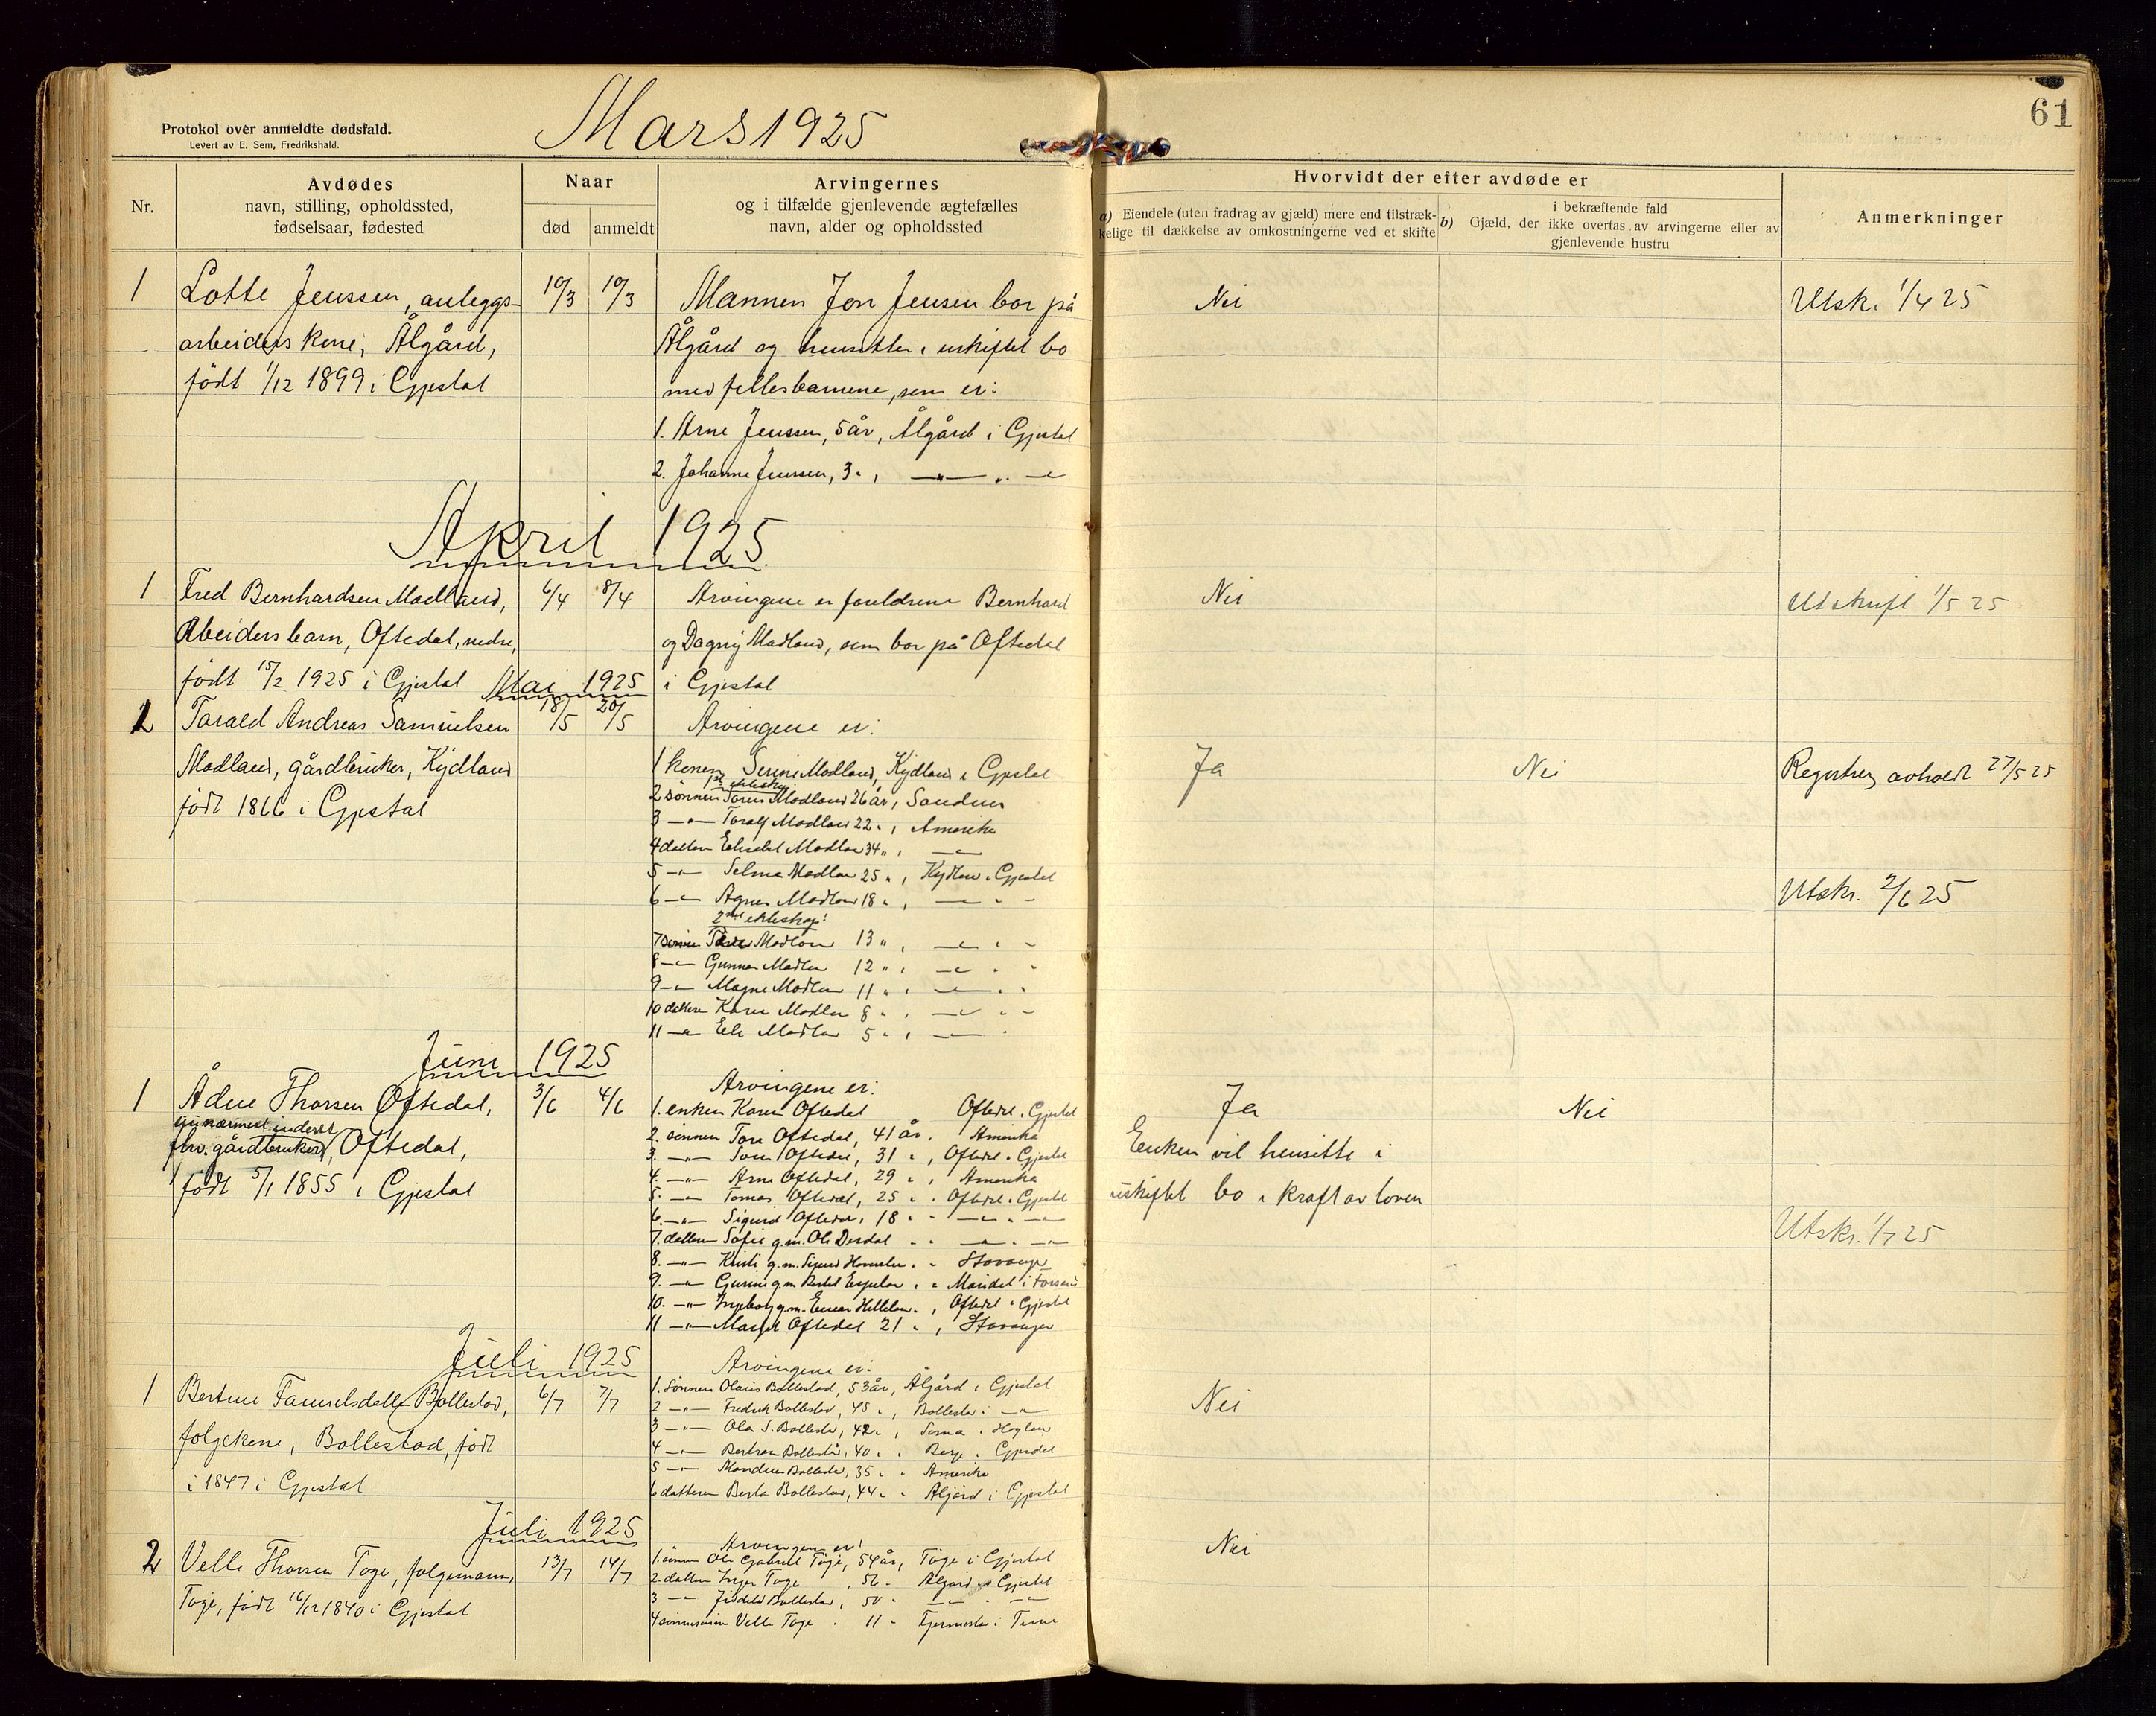 61
Protokol over anmeldte dødsfald.
Levert av E. Sem, Fredrikshald.
Mars 1925
Nr.
Avdødes
navn, stilling, opholdssted,
fødselsaar, fødested
Naar
død
anmeldt
Arvingernes
og i tilfælde gjenlevende ægtefælles
navn, alder og opholdssted
Hvorvidt der efter avdøde er
a) Eiendele (uten fradrag av gjæld) mere end tilstræk-
kelige til dækkelse av omkostningerne ved et skifte
i bekræftende fald
b) Gjæld, der ikke overtas av arvingerne eller av
gjenlevende hustru
Anmerkninger
1
Lotte Jenssen, anleggs-
arbeiders kone, Ålgård,
født 1/12 1899 i Gjestal
10/3
10/3
Mannen Jon Jensen bor på
Ålgård og hensitter i uskiftet bo
med fellesbarnene, som er:
1. Arne Jenssen, 5 år, Ålgård i Gjestal
2. Johanne Jenssen, 3 " , —"— " —"—
Nei
Utskr. 1/4 25
April 1925
1
Fred Bernhardsen Madland,
Abeiders barn, Oftedal, nedre,
født 15/2 1925 i Gjestal
6/4
8/4
Arvingene er foreldrene Bernhard
og Dagny Madland, som bor på Oftedal
i Gjestal
Nei
Utskrift 1/5 25
Mai 1925
2
Tarald Andreas Samuelsen
Modland, gårdbruker, Kydland
født 1866 i Gjestal
18/5
20/5
Arvingene er:
1 konen Serine Modland, Kydland i Gjestal
1ste ekteskap
2 sønnen Modland 26 år, Sandnes
3 —"— Toralf Modland 22 " , Amerika
4 datteren Elisabet Modland 34 " , —"—
5 —"— Selma Modland 25 " , Kydland i Gjestal
6 —"— Agnes Modland 18 " , —"— " —
2net ekteskap:
7 sønnen Modland 13 " , —"— " —
8 —"— Gunnar Modland 12 " , —"— " —
9 —"— Magne Modland 11 " , —"— " —
10 datteren Karen Modland 8 " , —"— " —
11 —"— Modland 5 " , —"— "
Ja
Nei
Registrering avholdt 27/5 25
Utskr. 2/6 25
Juni 1925
1
Ådne Thorsen Oftedal,
fhv. gårdbruker, Oftedal,
født 5/1 1855 i Gjestal
3/6
4/6
Arvingene er:
1. enken Karen Oftedal Oftedal i Gjestal
2. sønnen Tore Oftedal, 41 år, Amerika
3. —"— Oftedal, 31 " , Oftedal i Gjestal
4. —"— Arne Oftedal, 29 " , Amerika
5. —"— Tomas Oftedal, 25 " , Oftedal i Gjestal
6. —"— Sigurd Oftedal, 18 " " —"— " —"—
7. datteren Sofie g.m. Ole Desdal " " —"— " —"—
8. —"— g.m. Sigurd " " Stavanger
9. —"— g.m. " " i
10. —"— Ingeborg g.m. Einar " , Oftedal i Gjestal
11 —"— Margit Oftedal 21 " , Stavanger
Ja
Nei
Enken vil hensitte i
uskiftet bo i kraft av loven
Utskr. 1/7 25
Juli 1925
1
Bertine Bollestad,
folgekone, Bollestad, født
i 1847 i Gjestal
6/7
7/7
Arvingene er:
1. Sønnen Olaus Bollestad, 53 år, Ålgård i Gjestal
2 —"— Fredrik Bollestad, 45 " , Bollestad i —"—
3 —"— Ola S. Bollestad, 42 " , i Høgland
4 —"— Bollestad, 40 " " Berge i Gjestal
5 —"— Bollestad, 35 " " Amerika
6 datteren Berta Bollestad, 44 " " Ålgård i Gjestal
Nei
Juli 1925
2
Velle Thorsen Tøge, folgemann,
Tøge, født 16/12 1840 i Gjestal
13/7
14/7
Arvingene er:
1. sønnen Ole Gabriel Tøge, 54 år, Tøge i Gjestal
2. datteren Inger Tøge , 56 " Ålgård i Gjestal
3 —"— Bollestad, 50 " —"— " —"—
4 sønnesønnen Velle Tøge " 11 " i Time
Nei